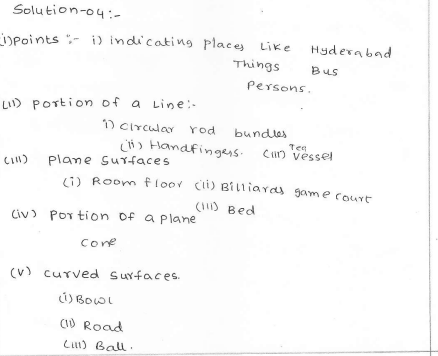 Solution-04:-
i) Points :- i) indicating places Like Hyderabad
Things Bus
Persons.
(ii) Portion of a Line:-
i) Circular rod bundles
(ii) Handfingers. (iii) Tea Vessel
(iii) Plane Surfaces
(i) Room floor (ii) Billiards game court
(iii) Bed
(iv) Portion of a plane
Cone
(v) curved surfaces.
(i) Bowl
(ii) Road
(iii) Ball.